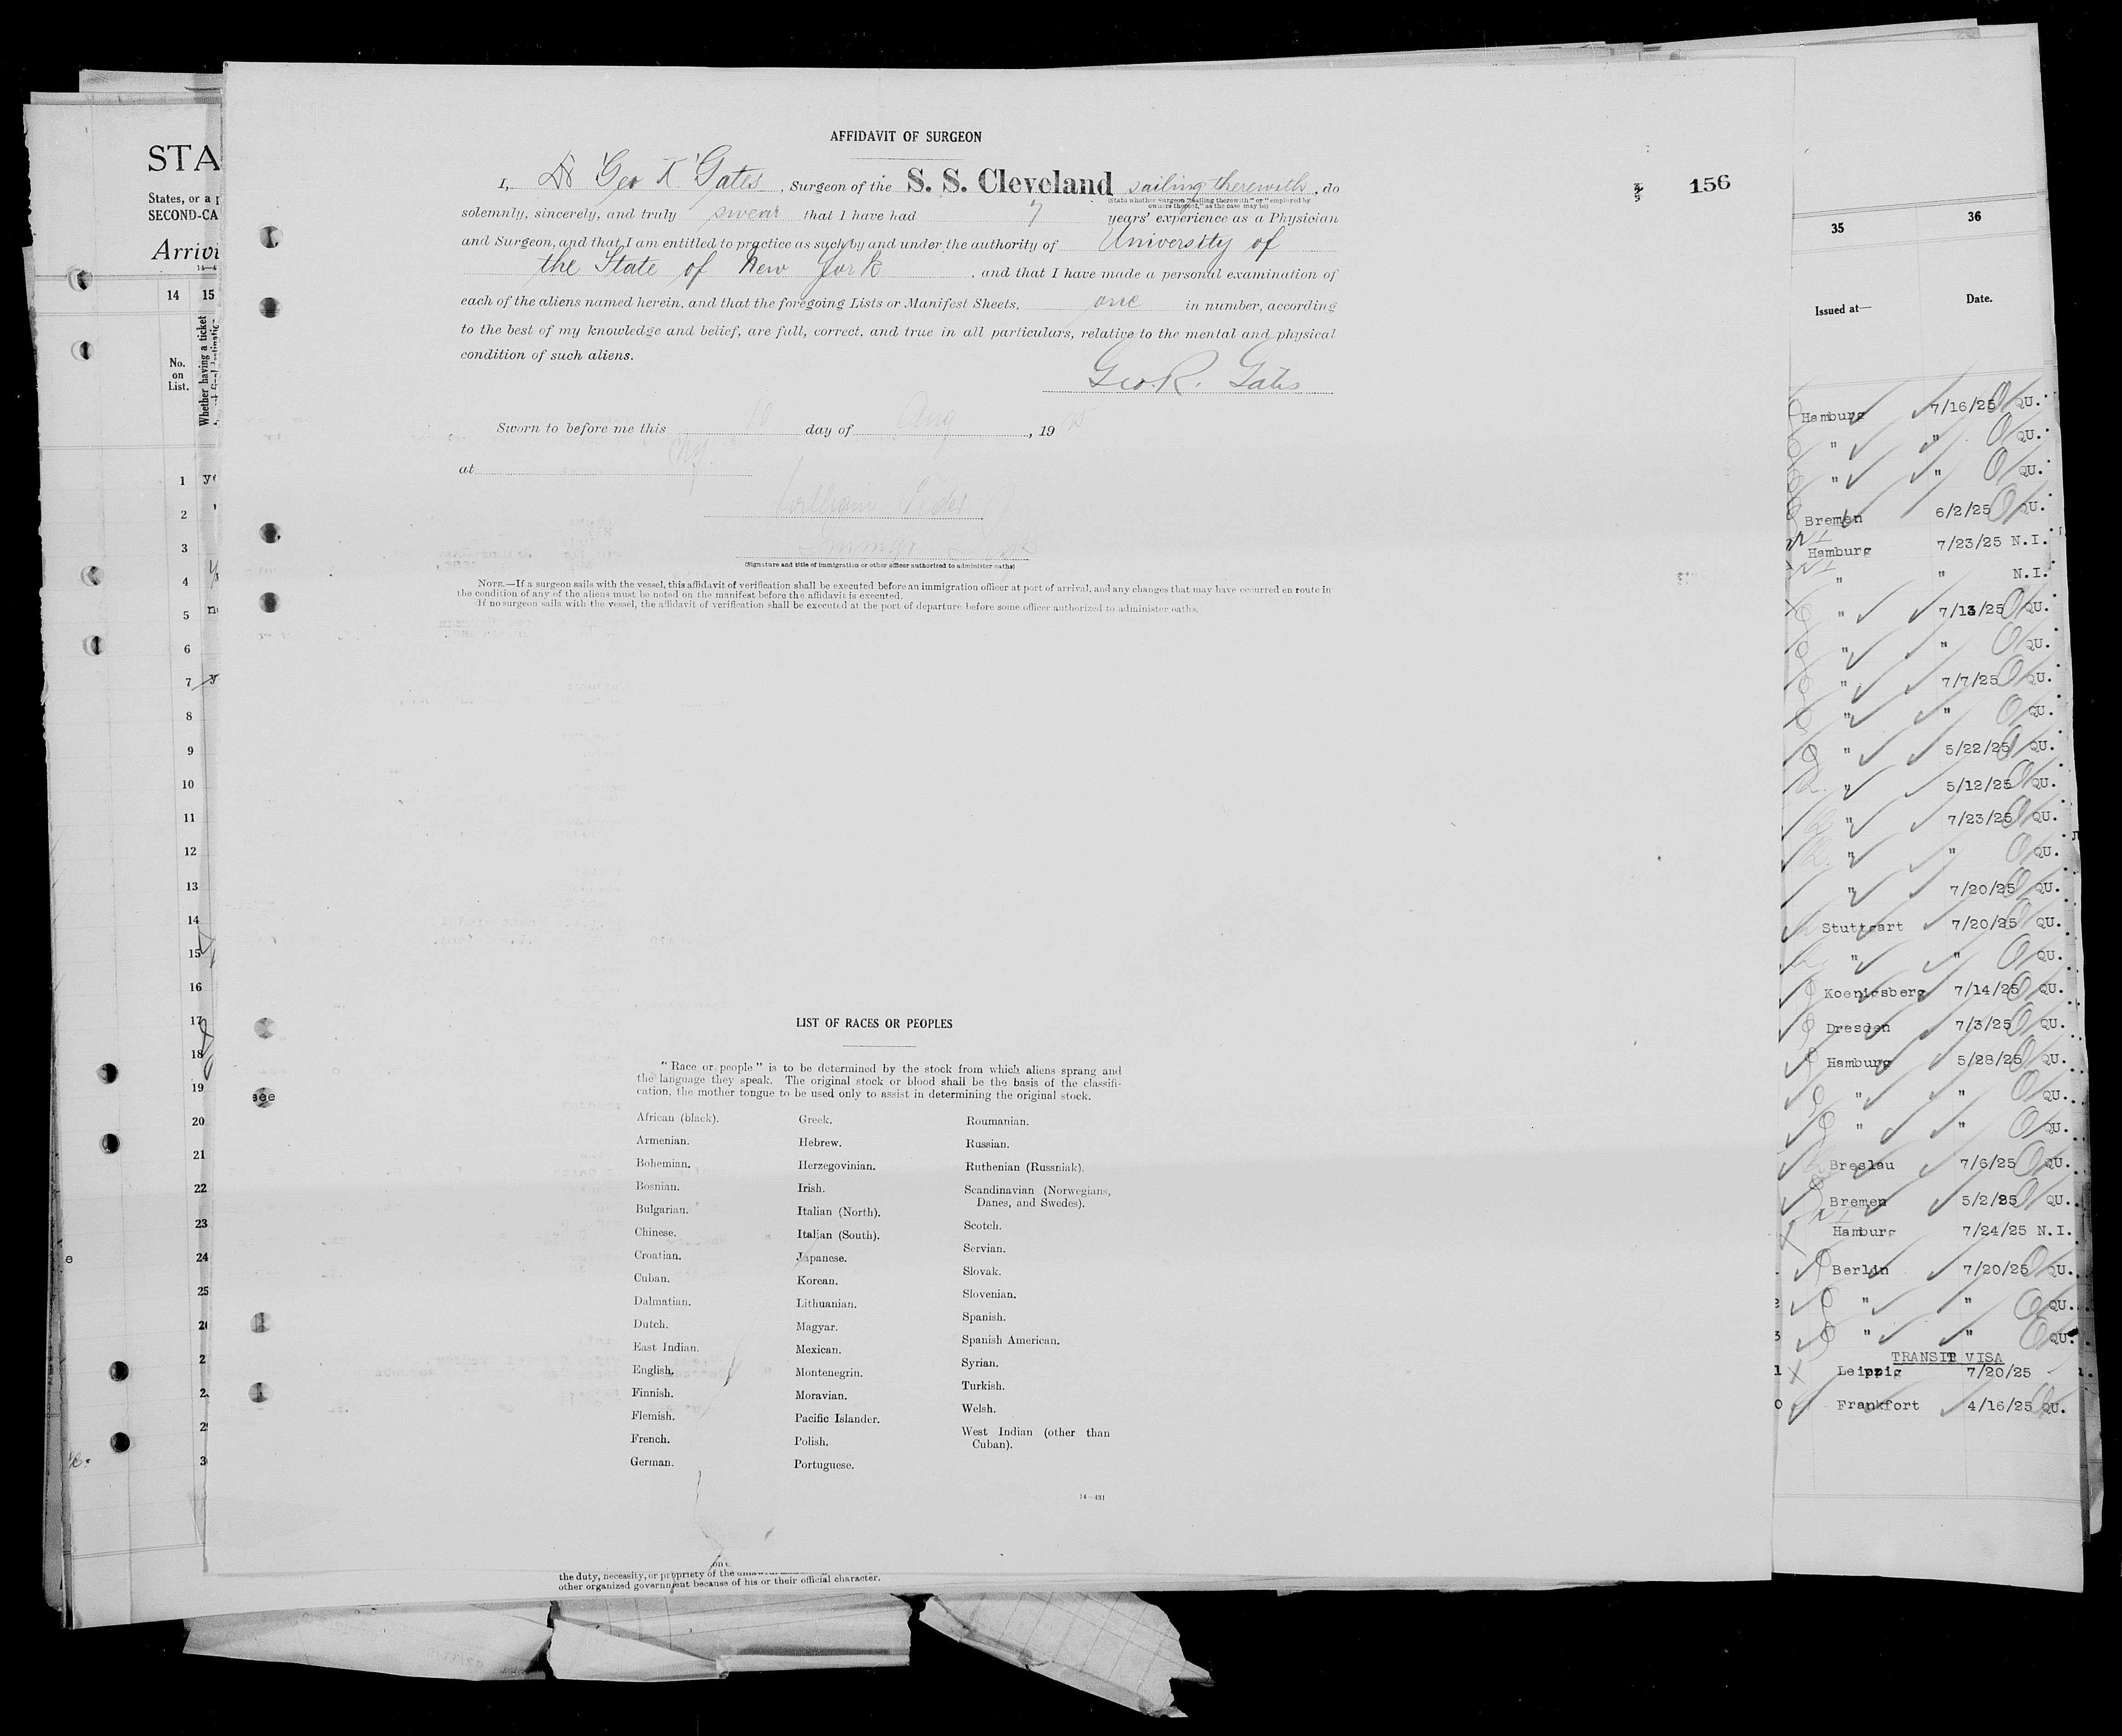 AFFIDAVIT OF SURGEON
156
I, Dr Geo R. Gates, Surgeon of the S. S. Cleveland sailing therewith, do
(State whether Surgeon "sailing therewith" or "employed by
owners thereof," as the case may be)
solemnly, sincerely, and truly swear that I have had 7 years' experience as a Physician
and Surgeon, and that I am entitled to practice as such by and under the authority of University of
the State of New York, and that I have made a personal examination of
each of the aliens named herein, and that the foregoing Lists or Manifest Sheets, one in number, according
to the best of my knowledge and belief, are full, correct, and true in all particulars, relative to the mental and physical
condition of such aliens.
Geo. R. Gates
Sworn to before me this 10 day of Aug, 1925
at NY.
William
(Signature and title of immigration or other officer authorized to administer oaths)
NOTE.—If a surgeon sails with the vessel, this affidavit of verification shall be executed before an immigration officer at port of arrival, and any changes that may have occurred en route in
the condition of any of the aliens must be noted on the manifest before the affidavit is executed.
If no surgeon sails with the vessel, the affidavit of verification shall be executed at the port of departure before some officer authorized to administer oaths.
LIST OF RACES OR PEOPLES
"Race or people" is to be determined by the stock from which aliens sprang and
the language they speak. The original stock or blood shall be the basis of the classifi-
cation, the mother tongue to be used only to assist in determining the original stock.
African (black).
Armenian.
Bohemian.
Bosnian.
Bulgarian.
Chinese.
Croatian.
Cuban.
Dalmatian.
Dutch.
East Indian.
English.
Finnish.
Flemish.
French.
German.
Greek.
Hebrew.
Herzegovinian.
Irish.
Italian (North).
Italian (South).
Japanese.
Korean.
Lithuanian.
Magyar.
Mexican.
Montenegrin.
Moravian.
Pacific Islander.
Polish.
Portuguese.
Roumanian.
Russian.
Ruthenian (Russniak).
Scandinavian (Norwegians,
Danes, and Swedes).
Scotch.
Servian.
Slovak.
Slovenian.
Spanish.
Spanish American.
Syrian.
Turkish.
Welsh.
West Indian (other than
Cuban).
14—431
the duty, necessity, or propriety of the
other organized government because of his or their official character.
STA
States, or a p
SECOND-CA
Arrivi
14 15
No.
on
List.
Whether having a ticket
1 ye
2 "
3
4
5 no
6
7 y
8
9
10
11
12
13
14
15
16
17
18
19
see
20
21
22
23
24
25
35 36
Issued at— Date.
Hamburg 7/16/25 QU.
" " QU.
" " QU.
Bremen 6/2/25 QU.
Hamburg 7/23/25 N.I.
" " N.I.
" 7/13/25 QU.
" " QU.
" 7/7/25 QU.
" " QU.
" 5/22/25 QU.
" 5/12/25 QU.
" 7/23/25 QU.
" " QU.
" 7/20/25 QU.
Stuttgart 7/20/25 QU.
" " QU.
Koenigsberg 7/14/25 QU.
Dresden 7/3/25 QU.
Hamburg 5/28/25 QU.
" " QU.
" " QU.
Breslau 7/6/25 QU.
Bremen 5/2/25 QU.
Hamburg 7/24/25 N.I.
Berlin 7/20/25 QU.
" " QU.
" " QU.
TRANSIT VISA
Leipzig 7/20/25
Frankfort 4/16/25 QU.